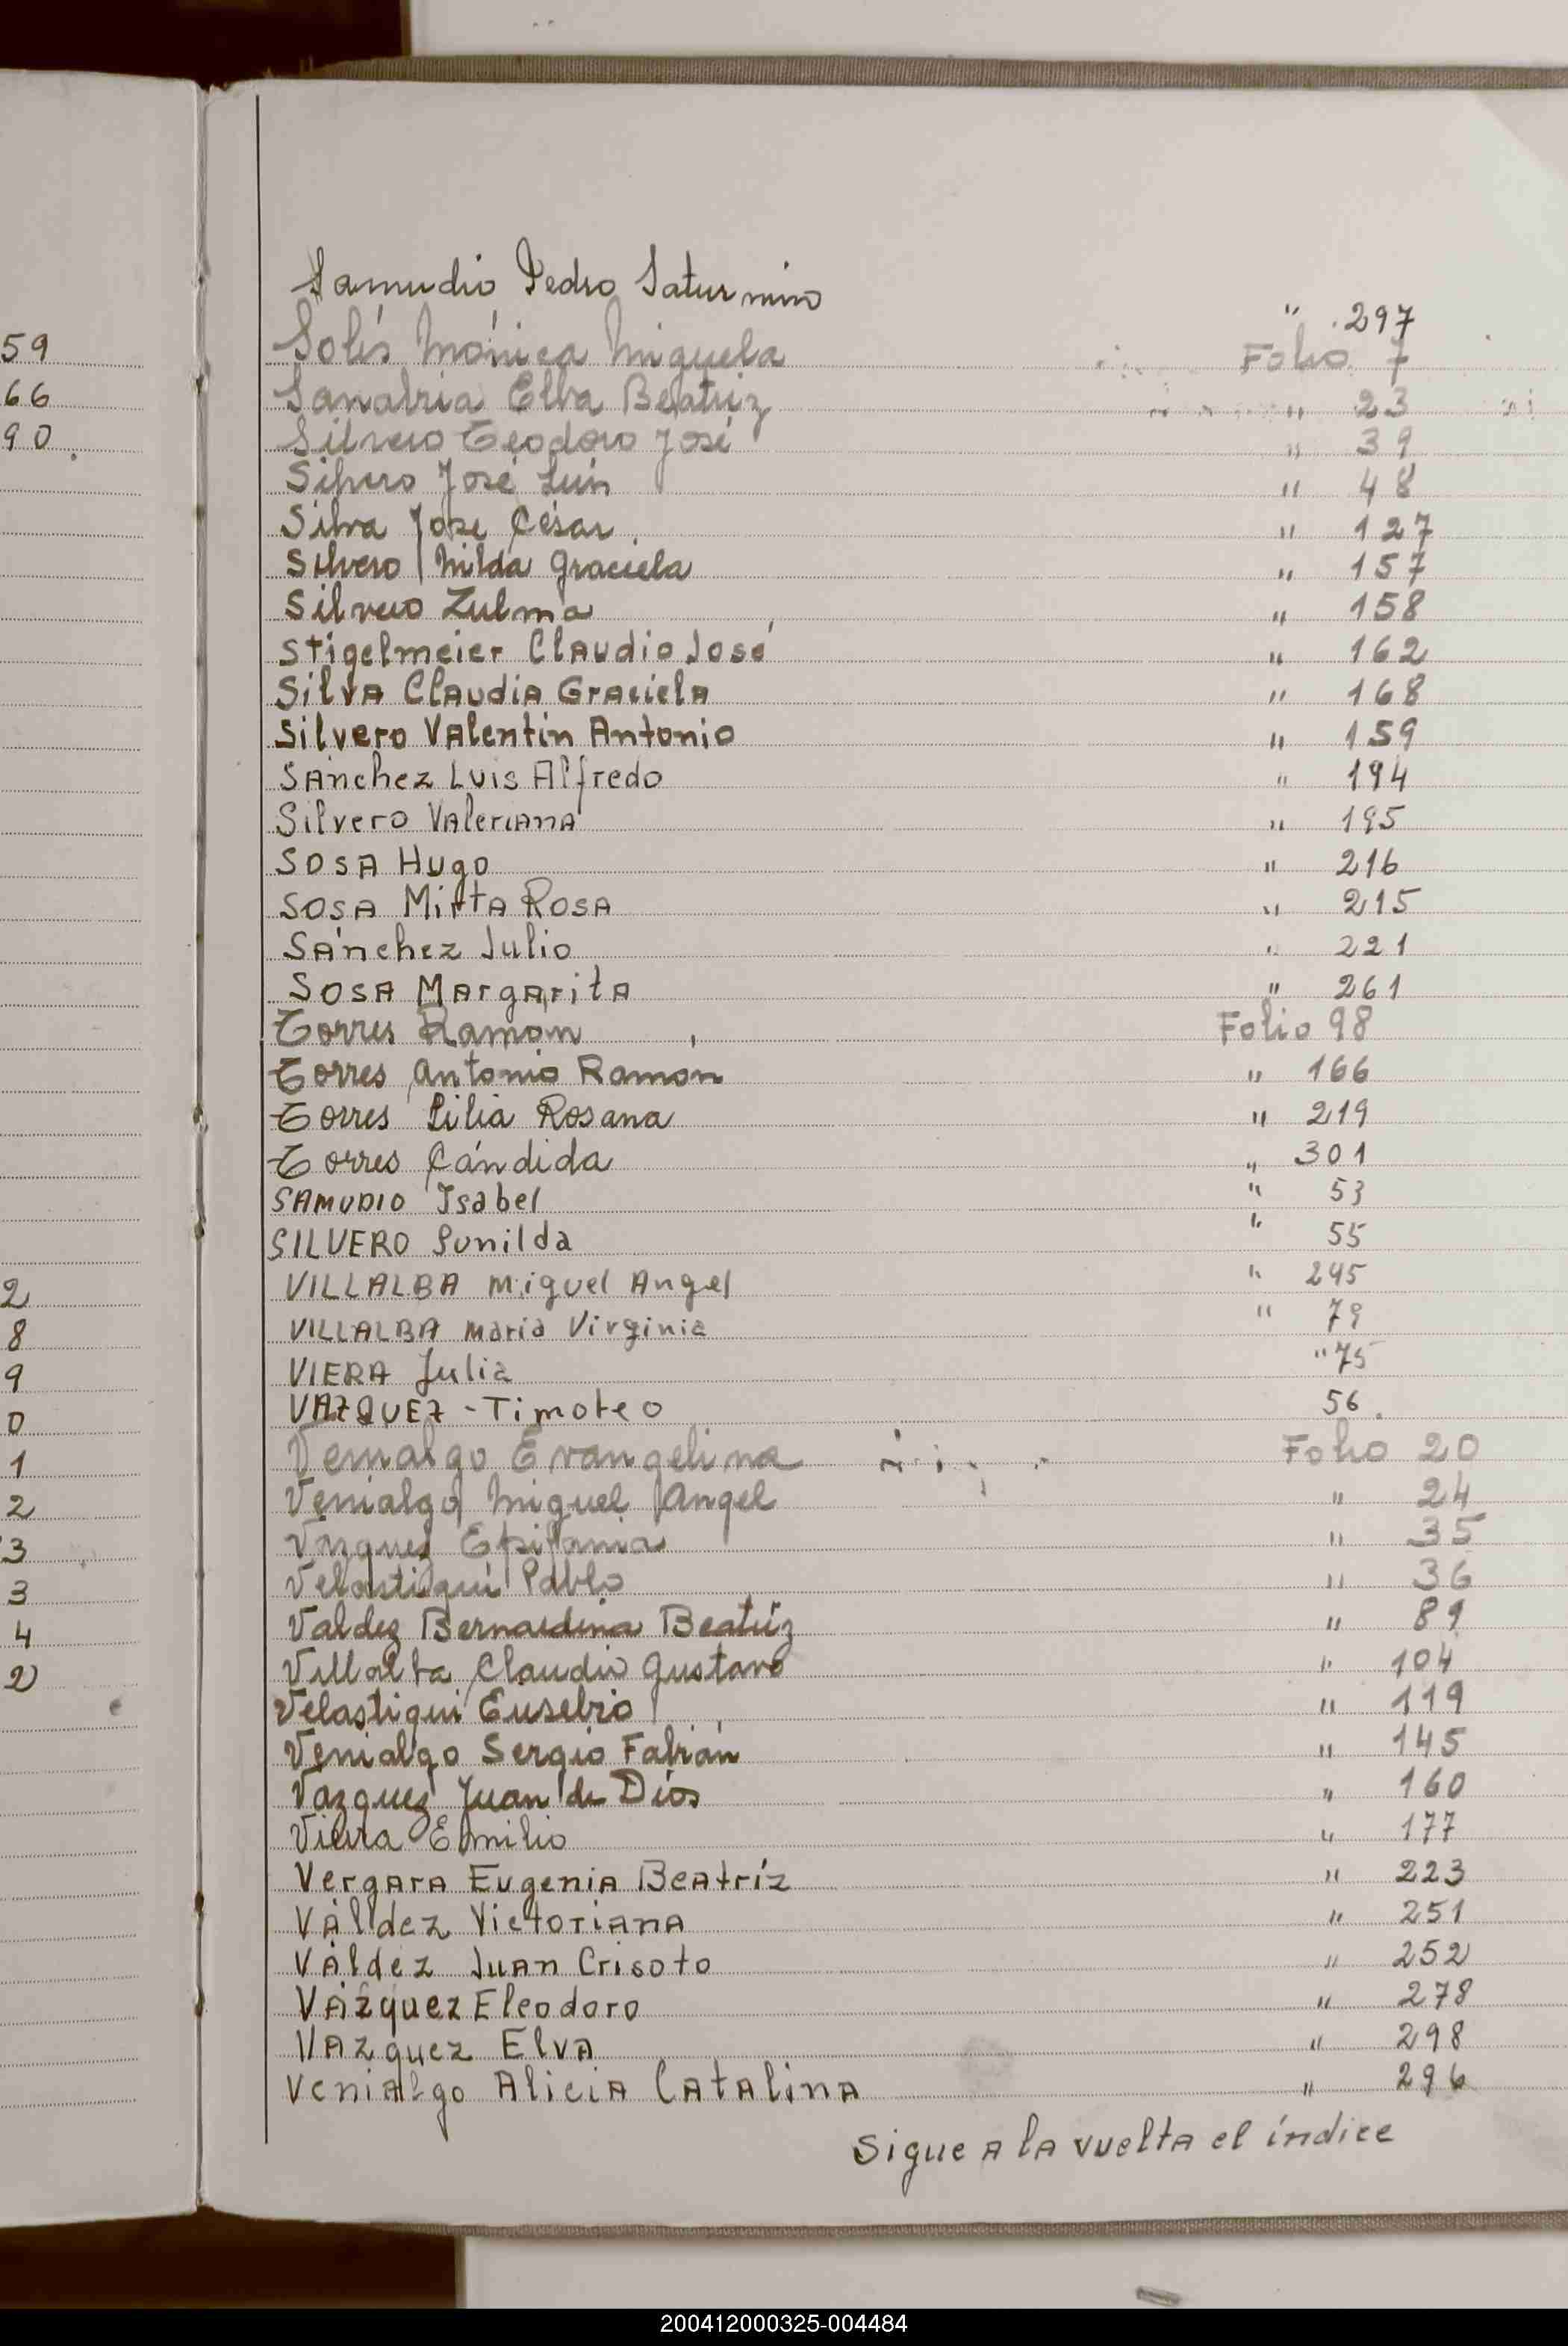 59
66
90.
2
8
9
0
1
2
3
3
4
2
Samudio Pedro Saturnino " 297
Solís Mónica Miguela Folio 7
Sanabria Elba Beatriz " 23
Silvero Teodoro José " 39
Silvero José Luis " 48
Silva Jose César " 127
Silvero Nilda Graciela " 157
Silvero Zulma " 158
Stigelmeier Claudio José " 162
Silva Claudia Graciela " 168
Silvero Valentín Antonio " 159
Sánchez Luis Alfredo " 194
Silvero Valeriana " 195
Sosa Hugo " 216
Sosa Mirta Rosa " 215
Sánchez Julio " 221
Sosa Margarita " 261
Torres Ramon Folio 98
Torres Antonio Ramon " 166
Torres Lilia Rosana " 219
Torres Cándida " 301
SAMUDIO Isabel " 53
SILVERO Sunilda " 55
VILLALBA Miguel Angel " 245
VILLALBA Maria Virginia " 79
VIERA Julia " 75
VAZQUEZ - Timoteo 56.
Venialgo Evangelina Folio 20
Venialgo Miguel Angel " 24
Vazquez Epifania " 35
Velastiqui Pablo " 36
Valdez Bernardina Beatriz " 89
Villalba Claudio Gustavo " 104
Velastiqui Eusebio " 119
Venialgo Sergio Fabián " 145
Vazquez Juan de Dios " 160
Viera Emilio " 177
Vergara Eugenia Beatríz " 223
Válldez Victoriana " 251
Váldez Juan Crisoto " 252
Vázquez Eleodoro " 278
Vazquez Elva " 298
Venialgo Alicia Catalina " 296
Sigue a la vuelta el índice
200412000325-004484